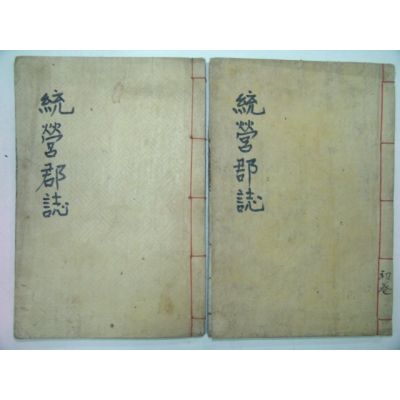 統營郡誌
統營郡誌